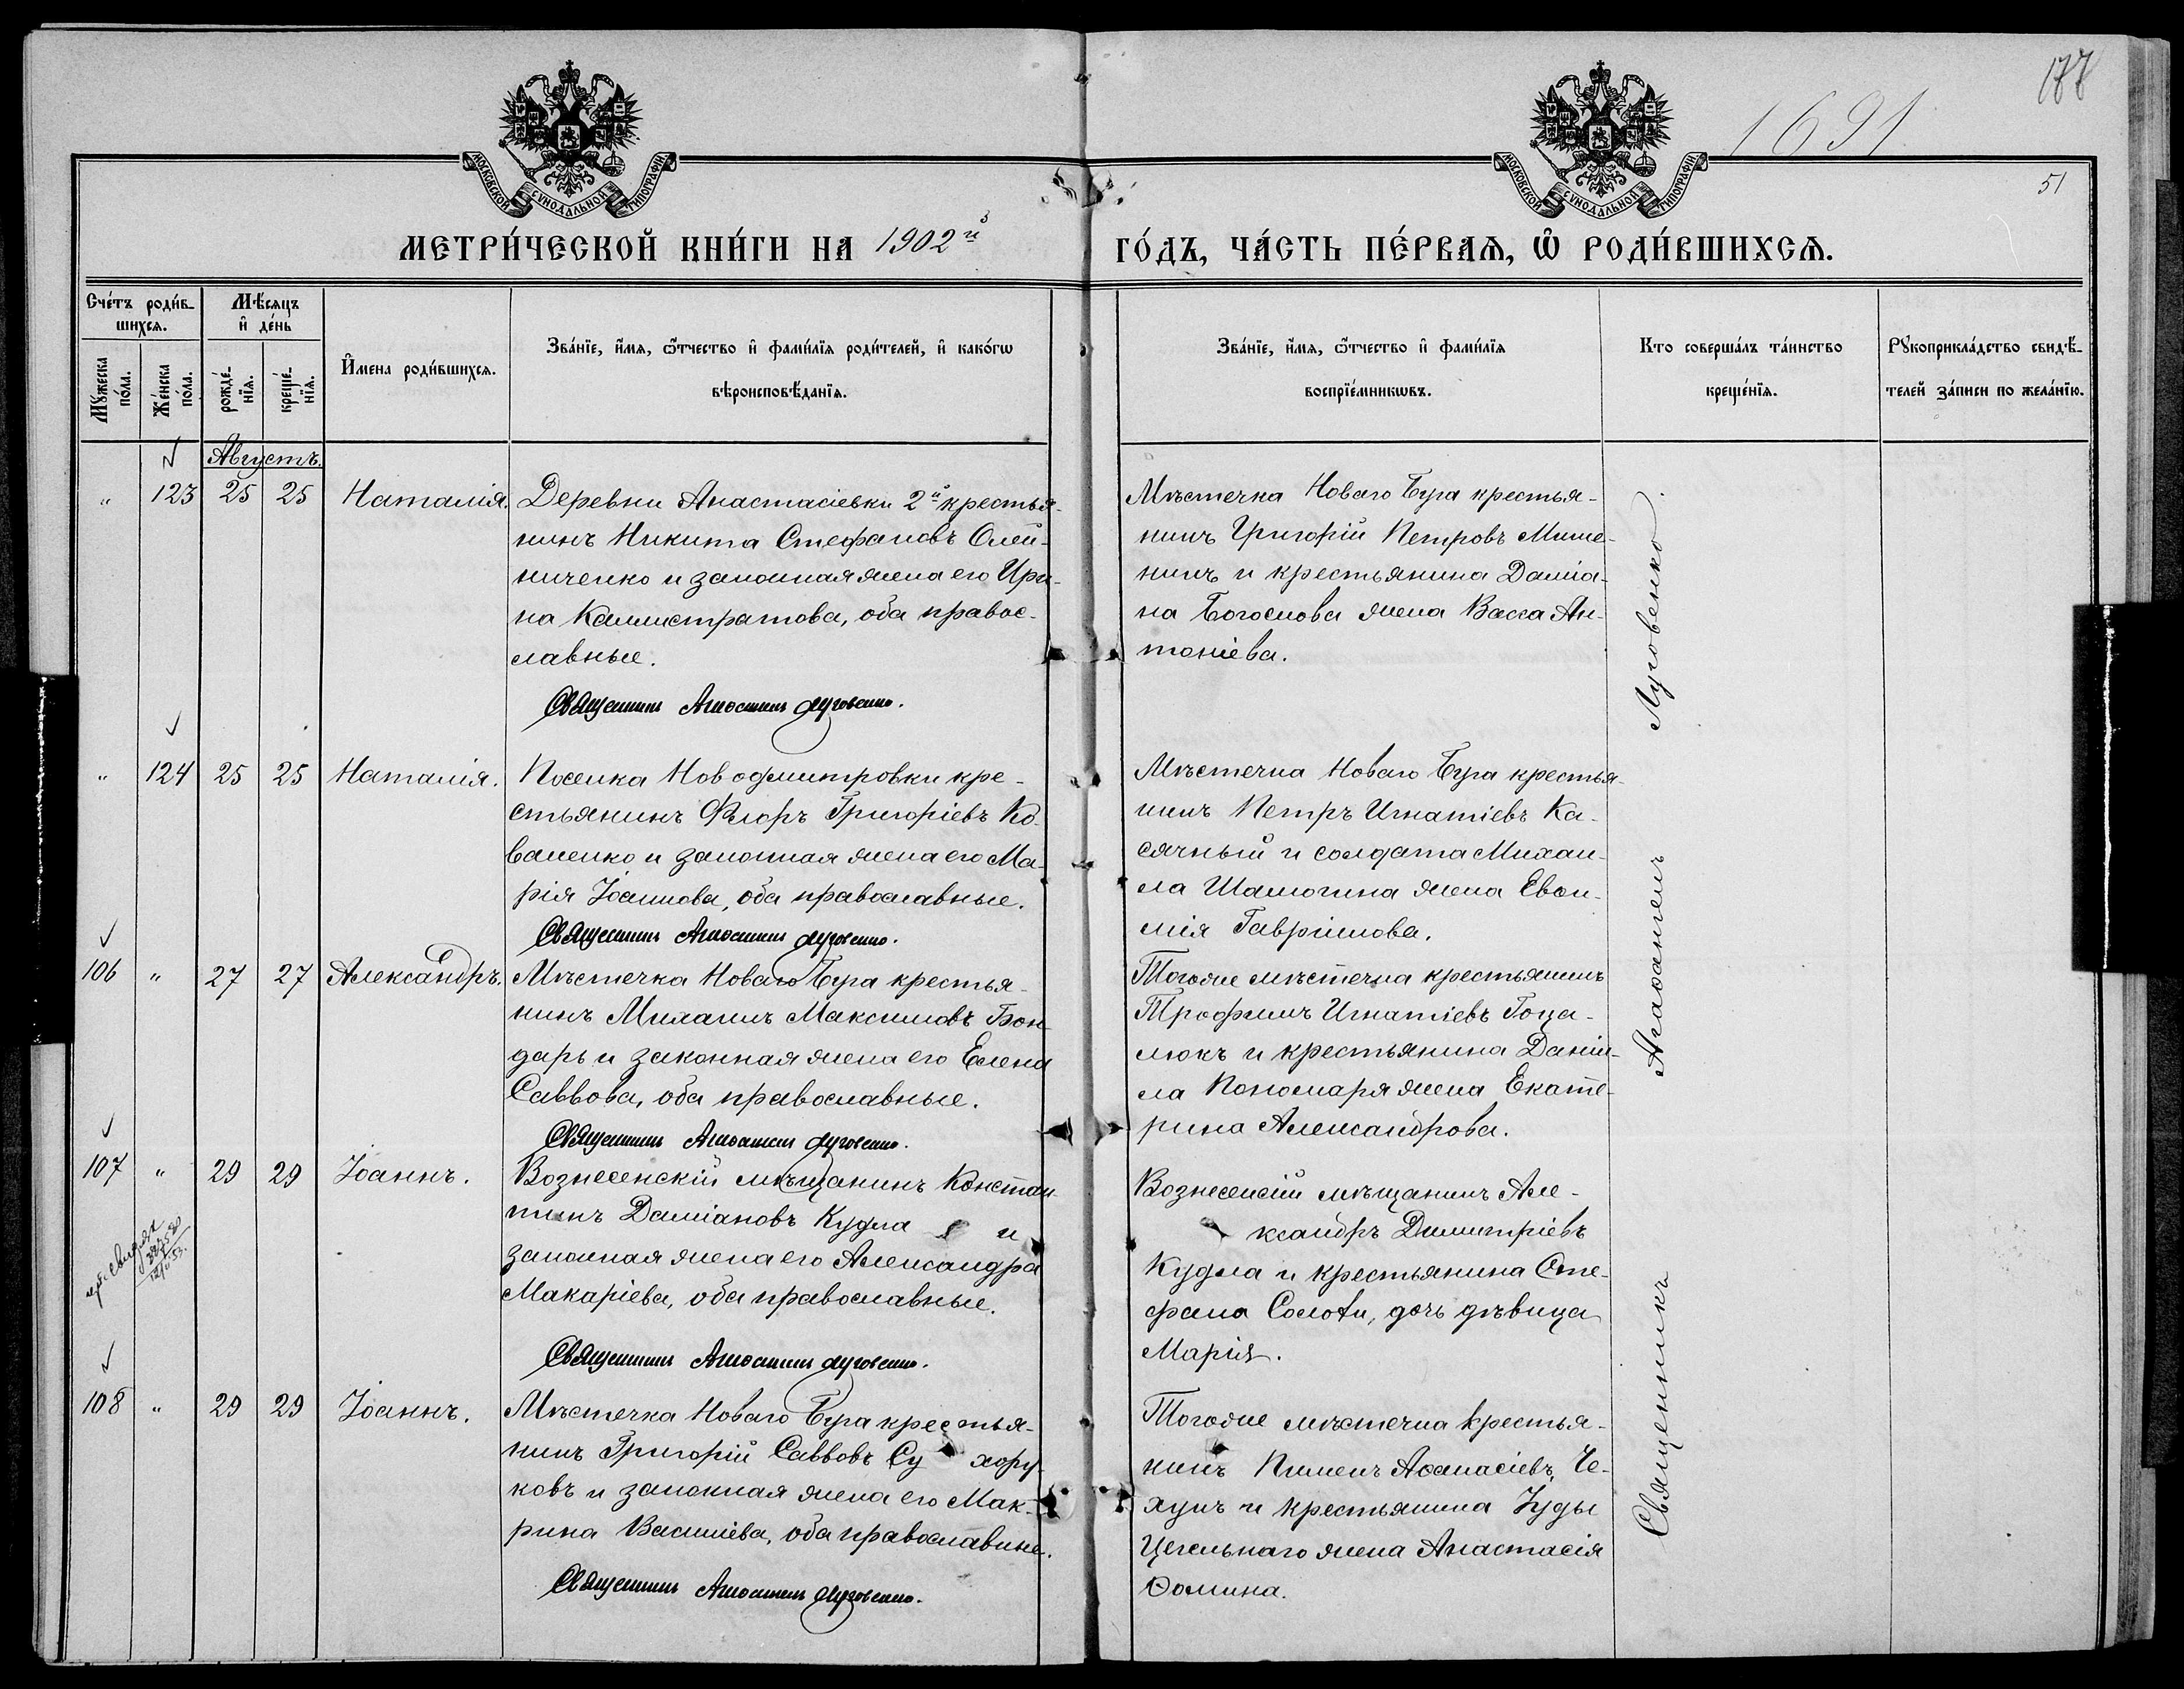 177
1691
51
МОСКОВСКОЙ СУНОДАЛЬНОЙ ТИПОГРАФІИ
МОСКОВСКОЙ СУНОДАЛЬНОЙ ТИПОГРАФІИ
МЕТРИ́ЧЕСКОЙ КНИ́ГИ НА 1902й ГО́ДЪ, ЧА́СТЬ ПЕ́РВАѦ, Ѡ҆ РОДИ́ВШИХСѦ.
Сче́тъ роди́в-
шихсѧ.
Мꙋ́жеска по́ла.
Же́нска по́ла.
Мѣ́сѧцъ
и҆ де́нь
рожде́-нїѧ.
креще́-нїѧ.
И҆́мена роди́вшихсѧ.
Зва́нїе, и҆́мѧ, ѻ҆́тчество и҆ фами́лїѧ роди́телей, и҆ како́гѡ
вѣроисповѣ́данїѧ.
Зва́нїе, и҆́мѧ, ѻ҆́тчество и҆ фами́лїѧ
воспрїе́мникѡвъ.
Кто соверша́лъ та́инство
креще́нїѧ.
Рꙋкоприкла́дство свидѣ́-
телей за́писи по жела́нїю.
Августъ.
" 123 25 25 Наталія.
Деревни Анастасіевки 2й крестья-
нинъ Никита Стефановъ Олей-
ниченко и законная жена его Ири-
на Каллистратова, оба правос-
лавные.
Священникъ Агаѳангелъ Луговенко.
Мѣстечка Новаго Буга крестья-
нинъ Григорій Петровъ Мише-
нинъ и крестьянина Даміа-
на Богослова жена Васса Ан-
тоніева.
" 124 25 25 Наталія.
Поселка Новодмитровки кре-
стьянинъ Флоръ Григоріевъ Ко-
валенко и законная жена его Ма-
рія Іоаннова, оба православные.
Священникъ Агаѳангелъ Луговенко.
Мѣстечка Новаго Буга крестья-
нинъ Петръ Игнатіевъ Ка-
сячный и солдата Михаи-
ла Шамогина жена Евѳи-
мія Гавріилова.
106 " 27 27 Александръ.
Мѣстечка Новаго Буга крестья-
нинъ Михаилъ Максимовъ Бон-
дарь и законная жена его Елена
Саввова, оба православные.
Священникъ Агаѳангелъ Луговенко.
Тогоже мѣстечка крестьянинъ
Трофимъ Игнатіевъ Гоца-
люкъ и крестьянина Даніи-
ла Пономаря жена Екате-
рина Александрова.
107 " 29 29 Іоаннъ.
Вознесенскій мѣщанинъ Констан-
тинъ Даміановъ Кудла и
законная жена его Александра
Макаріева, оба православные.
Священникъ Агаѳангелъ Луговенко.
Вознесенскій мѣщанинъ Але-
ксандръ Димитріевъ
Кудла и крестьянина Сте-
фана Соловья, дочь дѣвица
Марія.
108 " 29 29 Іоаннъ.
Мѣстечка Новаго Буга крестья-
нинъ Григорій Саввовъ Сухору-
ковъ и законная жена его Мак-
рина Василіева, оба православные.
Священникъ Агаѳангелъ Луговенко.
Тогоже мѣстечка крестья-
нинъ Пименъ Аѳанасіевъ Че-
хунъ и крестьянина Іуды
Цегельнаго жена Анастасія
Ѳомина.
Священникъ Агаѳангелъ Луговенко.